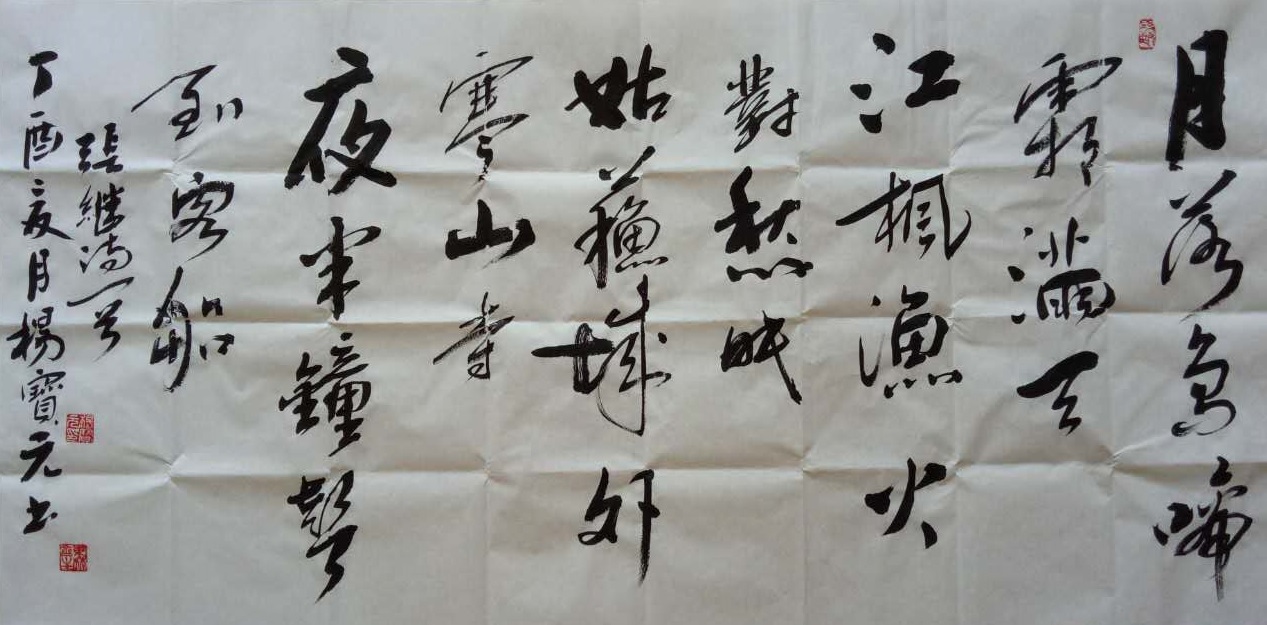 月落烏啼
霜滿天
江楓漁火
對愁眠
姑蘓城外
寒山寺
夜半鐘聲
到客船
張继诗一首
丁酉夏月楊寶元书